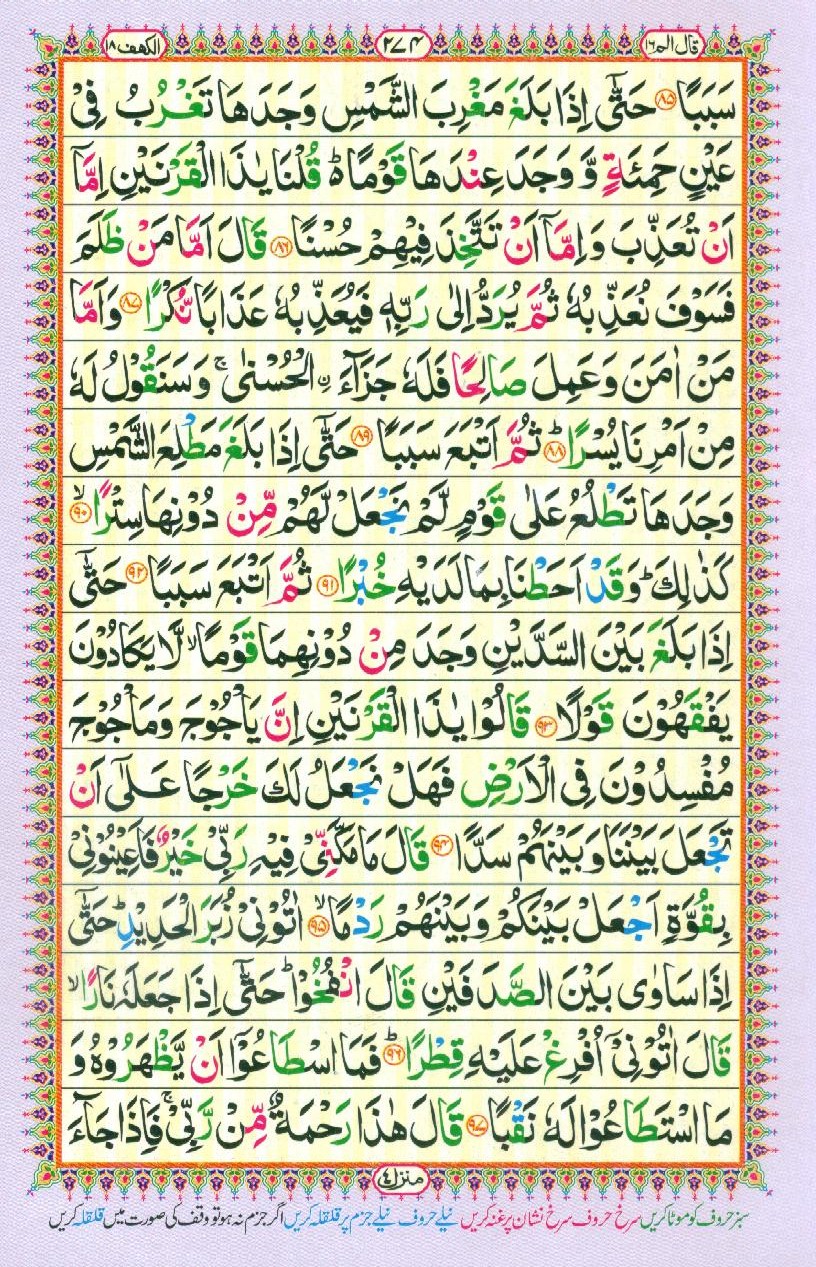 قال الم ١٦
٢٧٤
الكهف ١٨
سَبَبًا ﴿٨٥﴾ حَتّٰۤى اِذَا بَلَغَ مَغْرِبَ الشَّمْسِ وَجَدَهَا تَغْرُبُ فِىْ
عَيْنٍ حَمِئَةٍ وَّ وَجَدَ عِنْدَهَا قَوْمًا ؕ قُلْنَا يٰذَا الْقَرْنَيْنِ اِمَّاۤ
اَنْ تُعَذِّبَ وَاِمَّاۤ اَنْ تَتَّخِذَ فِيْهِمْ حُسْنًا ﴿٨٦﴾ قَالَ اَمَّا مَنْ ظَلَمَ
فَسَوْفَ نُعَذِّبُهٗ ثُمَّ يُرَدُّ اِلٰى رَبِّهٖ فَيُعَذِّبُهٗ عَذَابًا نُّكْرًا ﴿٨٧﴾ وَاَمَّا
مَنْ اٰمَنَ وَعَمِلَ صَالِحًا فَلَهٗ جَزَآءَ ۨ الْحُسْنٰى ۚ وَسَنَقُوْلُ لَهٗ
مِنْ اَمْرِنَا يُسْرًا ﴿٨٨﴾ ثُمَّ اَتْبَعَ سَبَبًا ﴿٨٩﴾ حَتّٰۤى اِذَا بَلَغَ مَطْلِعَ الشَّمْسِ
وَجَدَهَا تَطْلُعُ عَلٰى قَوْمٍ لَّمْ نَجْعَلْ لَّهُمْ مِّنْ دُوْنِهَا سِتْرًا ۙ﴿٩٠﴾
كَذٰلِكَ ؕ وَقَدْ اَحَطْنَا بِمَا لَدَيْهِ خُبْرًا ﴿٩١﴾ ثُمَّ اَتْبَعَ سَبَبًا ﴿٩٢﴾ حَتّٰۤى
اِذَا بَلَغَ بَيْنَ السَّدَّيْنِ وَجَدَ مِنْ دُوْنِهِمَا قَوْمًا ۙ لَّا يَكَادُوْنَ
يَفْقَهُوْنَ قَوْلًا ﴿٩٣﴾ قَالُوْا يٰذَا الْقَرْنَيْنِ اِنَّ يَاْجُوْجَ وَمَاْجُوْجَ
مُفْسِدُوْنَ فِى الْاَرْضِ فَهَلْ نَجْعَلُ لَكَ خَرْجًا عَلٰۤى اَنْ
تَجْعَلَ بَيْنَنَا وَبَيْنَهُمْ سَدًّا ﴿٩٤﴾ قَالَ مَا مَكَّنِّىْ فِيْهِ رَبِّىْ خَيْرٌ فَاَعِيْنُوْنِىْ
بِقُوَّةٍ اَجْعَلْ بَيْنَكُمْ وَبَيْنَهُمْ رَدْمًا ۙ﴿٩٥﴾ اٰتُوْنِىْ زُبَرَ الْحَدِيْدِ ؕ حَتّٰۤى
اِذَا سَاوٰى بَيْنَ الصَّدَفَيْنِ قَالَ انْفُخُوْا ؕ حَتّٰۤى اِذَا جَعَلَهٗ نَارًا ۙ
قَالَ اٰتُوْنِىْۤ اُفْرِغْ عَلَيْهِ قِطْرًا ؕ﴿٩٦﴾ فَمَا اسْطَاعُوْۤا اَنْ يَّظْهَرُوْهُ وَ
مَا اسْتَطَاعُوْا لَهٗ نَقْبًا ﴿٩٧﴾ قَالَ هٰذَا رَحْمَةٌ مِّنْ رَّبِّىْ ۚ فَاِذَا جَآءَ
منزل ٤
سبز حروف کو موٹا کریں سرخ حروف سرخ نشان پر غنہ کریں نیلے حروف نیلے جزم پر قلقلہ کریں اگر جزم نہ ہو تو وقف کی صورت میں قلقلہ کریں